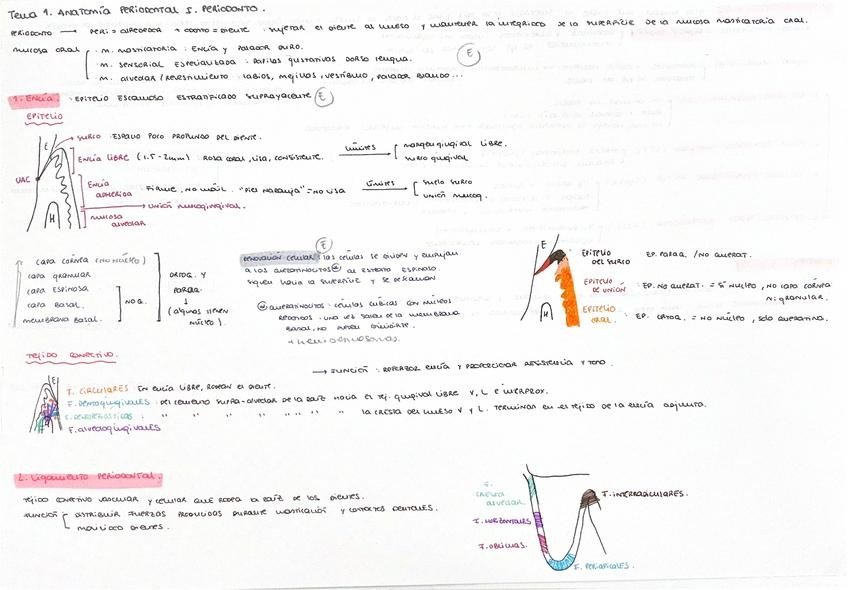 Tema 1. Anatomía periodontal s. periodonto.
Periodonto → peri = alrededor + odonto = diente : sujetar el diente al hueso y mantener la integridad de la superficie de la mucosa masticatoria oral.
mucosa oral
· M. masticatoria : encía y paladar duro.
· M. sensorial especializada : papilas gustativas dorso lengua.
· M. alveolar / revestimiento : labios, mejillas, vestíbulo, paladar blando...
E
1. Encía : epitelio escamoso estratificado suprayacente E
Epitelio
E
surco : espacio poco profundo del diente.
Encía libre (1.5-2mm) rosa coral, lisa, consistente. límites → margen gingival libre.
surco gingival
UAC
Encía adherida : firme, no móvil. "piel naranja" = no lisa límites → suelo surco
unión mucog.
→ unión mucogingival.
H
mucosa alveolar
capa córnea (no núcleo)
capa granular
capa espinosa
capa basal
membrana basal.
NOQ.
ortoq. y paraq.
↓
(algunos tienen núcleo.)
E
renovación celular : las células se dividen y empujan
a los queratinocitos al estrato espinoso.
siguen hacia la superficie y se descaman.
queratinocitos : células cúbicas con núcleos
redondos. una vez salen de la membrana
basal, no pueden dividirse.
+ hemidesmosomas.
E
H
Epitelio del surco EP. paraq. / no querat.
Epitelio de unión : EP. no querat. = sí núcleo, no capa córnea
ni granular.
Epitelio oral : EP. ortoq. = no núcleo, solo queratina.
Tejido conectivo.
→ función : reforzar encía y proporcionar resistencia y tono.
E
F. circulares en encía libre, rodean el diente.
F. dentogingivales : del cemento supra-alveolar de la raíz hacia el tej. gingival libre V, L e interprox.
F. dentoperiósticas : " " " " " " " la cresta del hueso V y L. terminan en el tejido de la encía adjunta.
F. alveologingivales
2. Ligamento periodontal.
Tejido conectivo vascular y celular que rodea la raíz de los dientes.
función
distribuir fuerzas producidas durante masticación y contactos dentales.
movilidad dientes.
F. cresta alveolar
F. horizontales
F. oblicuas.
F. periapicales.
F. interradiculares.